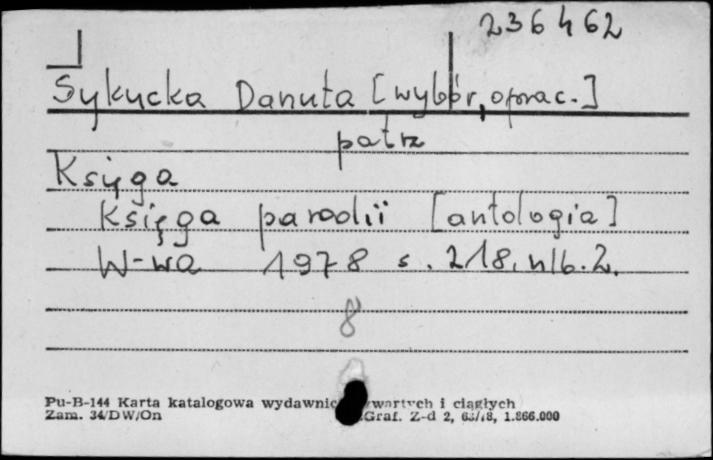 236462
Sykucka Danuta [wybór, oprac.]
patrz
Księga
Księga parodii [antologia]
W-wa 1978 s. 218, nlb. 2.
8
Pu-B-144 Karta katalogowa wydawnic wartych i ciągłych
Zam. 34/DW/On Graf. Z-d 2, 1.866.000